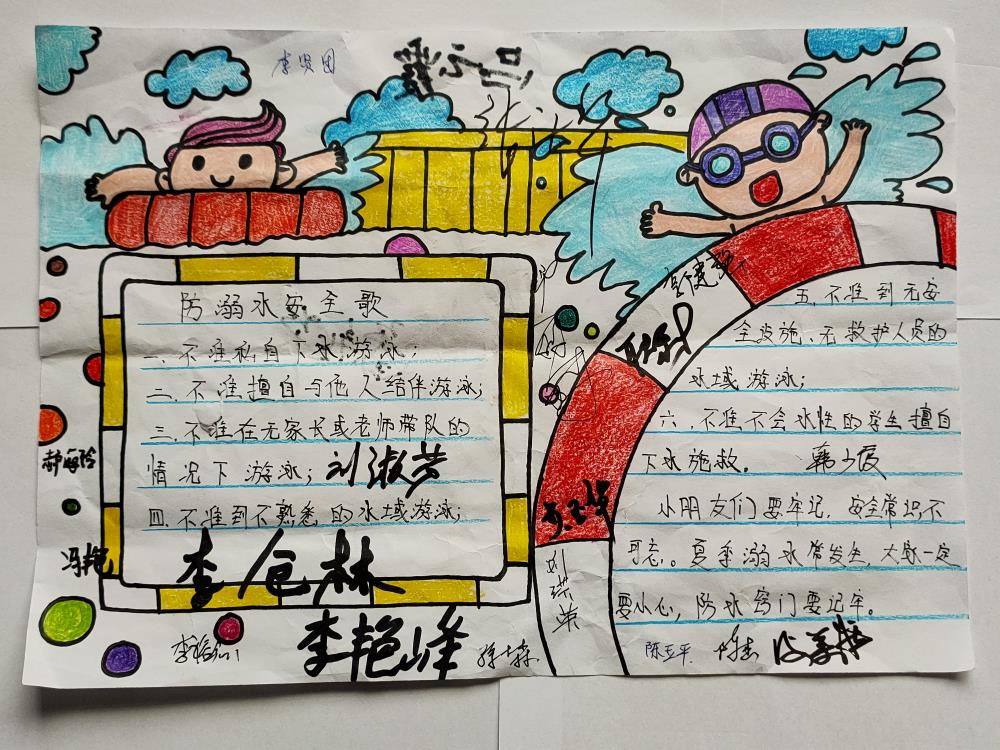 李贤国
防溺水安全歌
一、不准私自下水游泳；
二、不准擅自与他人结伴游泳；
三、不准在无家长或老师带队的
情况下游泳；刘淑芳
四、不准到不熟悉的水域游泳；
李仓林
李艳峰
郝海玲
冯艳
五、不准到无安
全设施、无救护人员的
水域游泳；
六、不准不会水性的学生擅自
下水施救。
小朋友们要牢记，安全常识不
可忘。夏季溺水常发生，大家一定
要小心，防水窍门要记牢。
刘洪荣
陈亚平